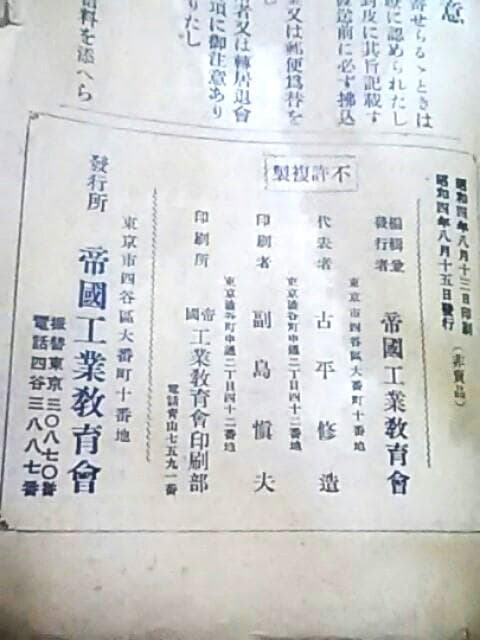 意
寄せらるゝときは
に認められたし
封皮に其旨記載す
送前に必ず拂込
又は郵便爲替を
者又は轉居退會
項に御注意あり
りたし
料を添へら
昭和四年八月十三日印刷
昭和四年八月十五日發行
(非賣品)
不許複製
編輯兼
發行者
帝國工業教育會
東京市四谷區大番町十番地
代表者 古平修造
東京澁谷町中通二丁目四十二番地
印刷者 副島愼夫
東京澁谷町中通二丁目四十二番地
印刷所 帝國工業教育會印刷部
電話青山七五九一番
東京市四谷區大番町十番地
發行所 帝國工業教育會
振替東京三〇八七〇番
電話四谷三八八七番